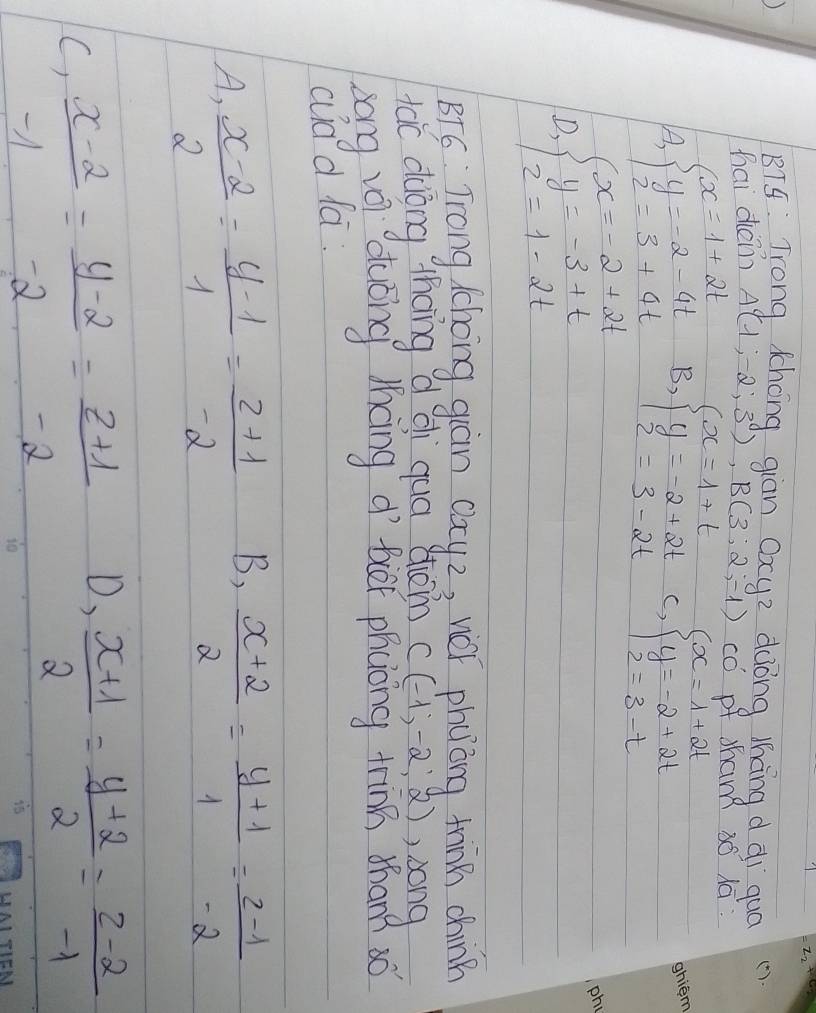 BT5: Trong không gian Oxyz đường thẳng d đi qua
hai điểm A(1;-2;3), B(3;2;-1) có pt tham số là:
A, { x = 1 + 2t
y = -2 - 4t
z = 3 + 4t
B, { x = 1 + t
y = -2 + 2t
z = 3 - 2t
C, { x = 1 + 2t
y = -2 + 2t
z = 3 - t
D, { x = -2 + 2t
y = -3 + t
z = 1 - 2t
BT6: Trong không gian Oxyz, viết phương trình chính
tắc đường thẳng d đi qua điểm C(-1;-2;2), song
song với đường thẳng d' biết phương trình tham số
của d là:
A, (x-2)/2 = (y-1)/1 = (z+1)/-2 B, (x+2)/2 = (y+1)/1 = (z-1)/-2
C, (x-2)/-1 = (y-2)/-2 = (z+1)/-2 D, (x+1)/2 = (y+2)/2 = (z-2)/-1
(*).
ghiệm
10
15
HẢI TIẾN